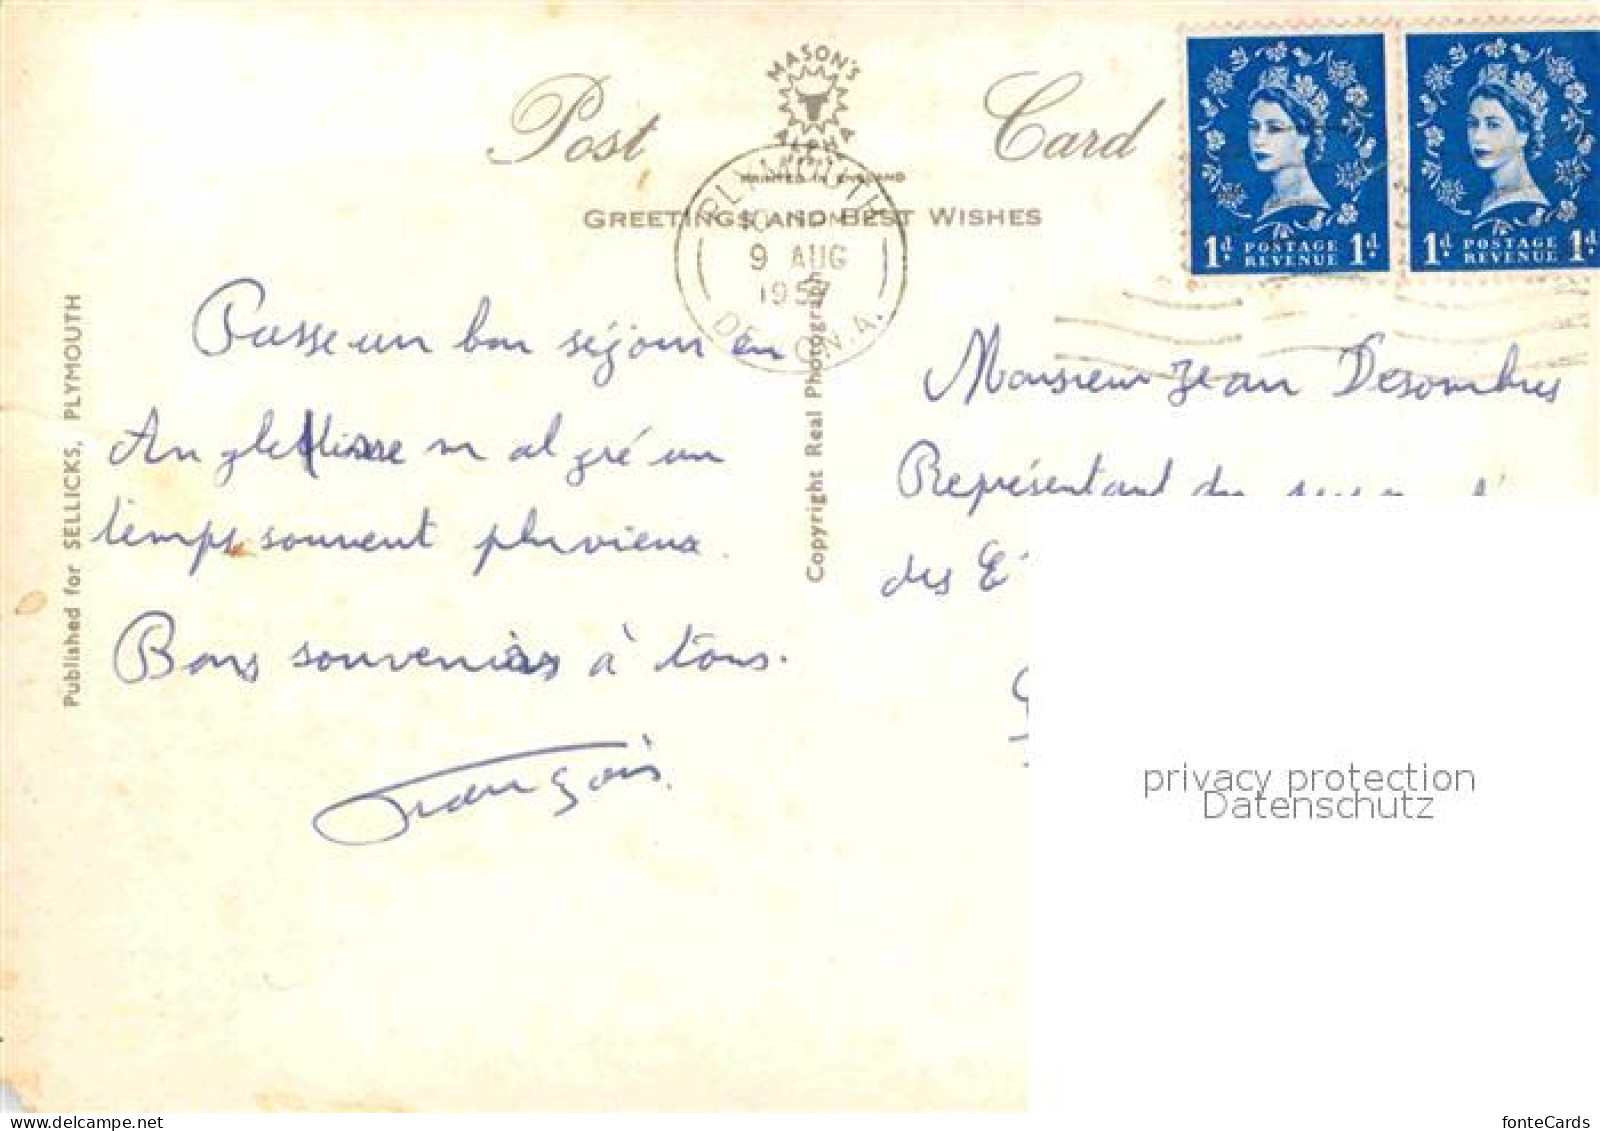 Post Card
MASON'S
ALPHA
SERIES
PRINTED IN ENGLAND
GREETINGS AND BEST WISHES
PLYMOUTH
9 AUG
1957
DEVON. A.
1d POSTAGE REVENUE 1d
1d POSTAGE REVENUE 1d
Published for SELLICKS, PLYMOUTH
Copyright Real Photograph
Passe un bon séjour en
Angleterre malgré un
temps souvent pluvieux.
Bons souvenirs à tous.
François.
Monsieur Jean Desombres
Représentant du
des
privacy protection
Datenschutz
fonteCards